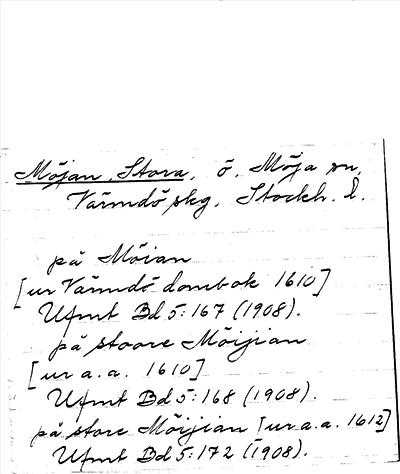 Möjan, Stora, ö, Möja sn,
Värmdö skg, Stockh. l.
på Möian
[ur Värmdö dombok 1610]
Ufmt Bd 5:167 (1908).
på stoore Möijian
[ur a.a. 1610]
Ufmt Bd 5:168 (1908).
på store Möijian [ur a.a. 1612]
Ufmt Bd 5:172 (1908).